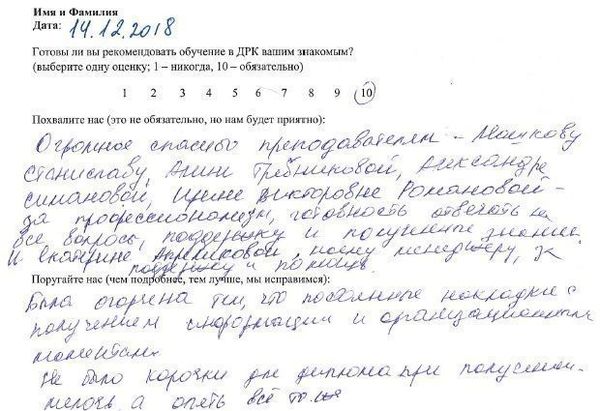 Имя и Фамилия
Дата: 14.12.2018
Готовы ли вы рекомендовать обучение в ДРК вашим знакомым?
(выберите одну оценку; 1 – никогда, 10 – обязательно)
1 2 3 4 5 6 7 8 9 10
Похвалите нас (это не обязательно, но нам будет приятно):
Огромное спасибо преподавателям – Машкову
Станиславу, Анне Гребниковой, Александре
Симановой, Ирине Викторовне Романовой –
за профессионализм, готовность отвечать на
все вопросы, поддержку и полученные знания
И Екатерине нашему менеджеру, за
поддержку и помощь.
Поругайте нас (чем подробнее, тем лучше, мы исправимся):
Была огорчена тем, что постоянные накладки с
получением информации и организационными
моментами
Не было корочки для диплома при получении.
мелочь, а опять всё то же